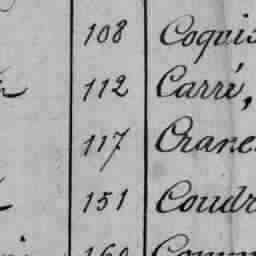 108 Coquis
112 Carré,
117 Crane
151 Coudr
160